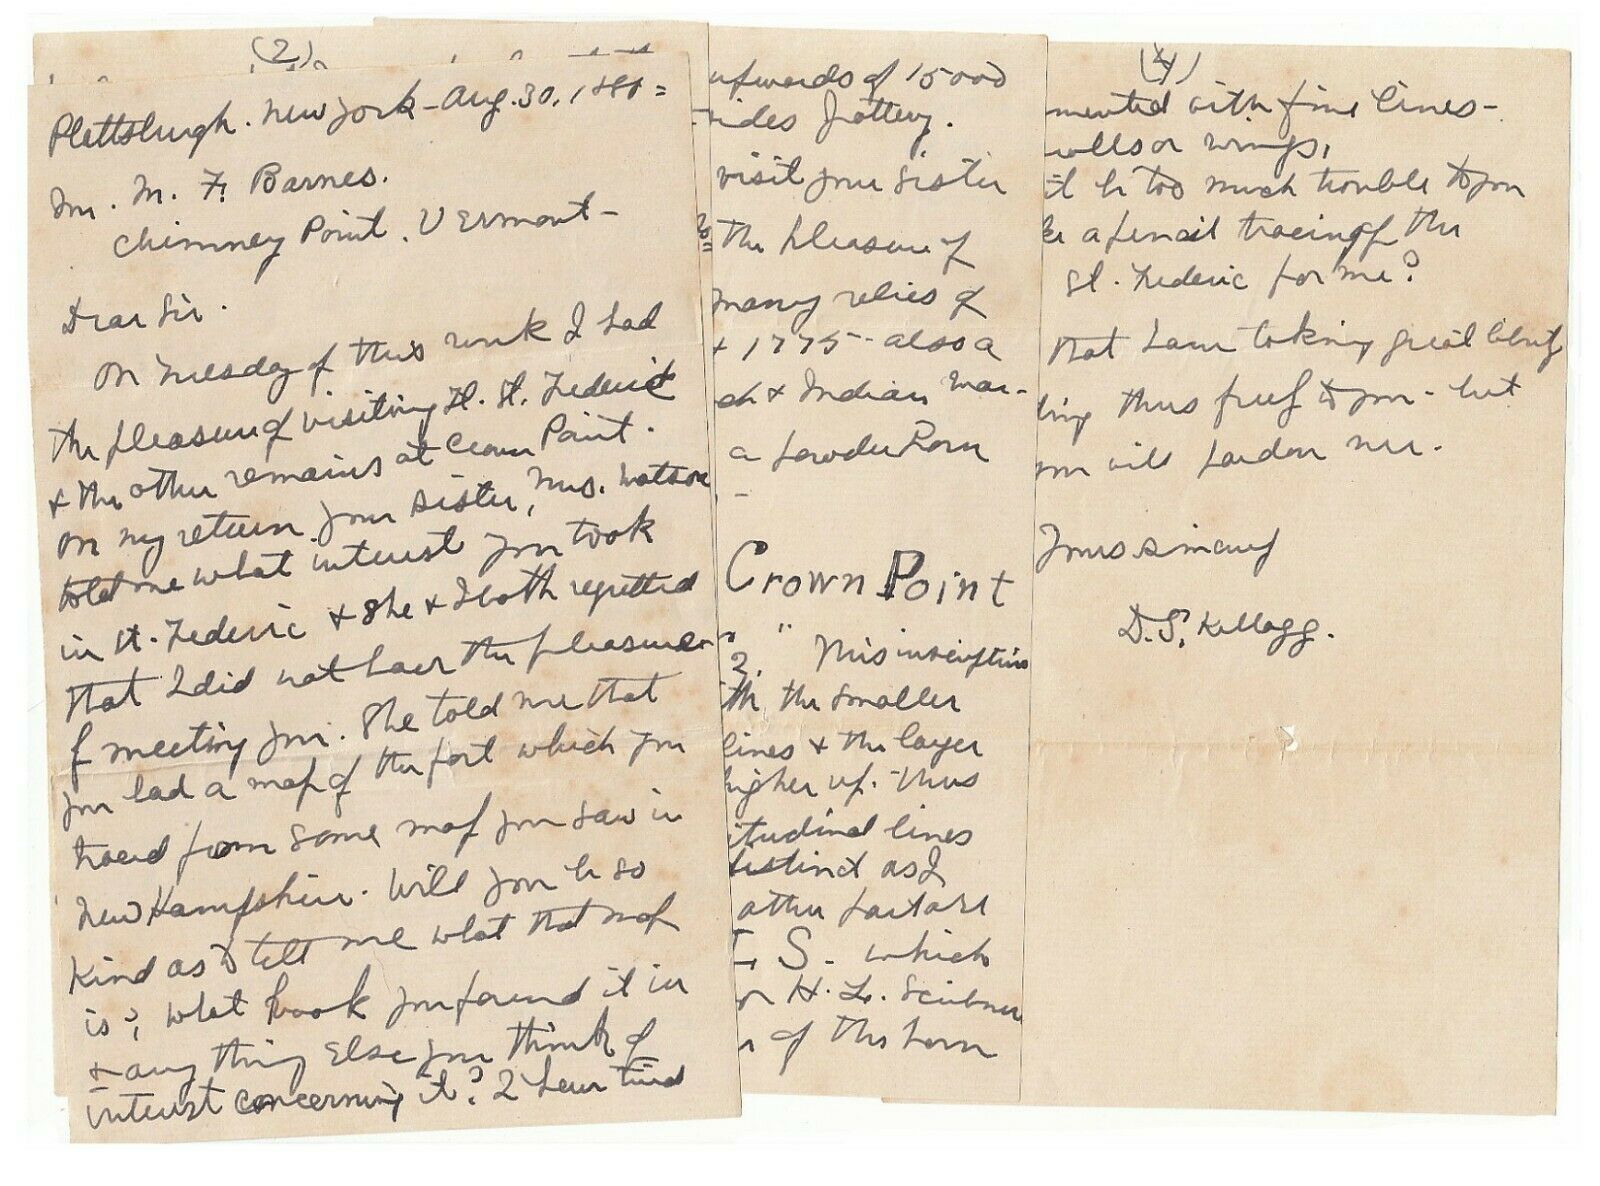 (2)
Plattsburgh. New York - Aug. 30, 188
Mr. M. F. Barnes.
Chimney Point, Vermont -
Dear Sir.
On Tuesday of this week I had
the pleasure of visiting Ft. St. Frederic
+ the other remains at Crown Point.
On my return your sister, Mrs. Watson
told me what interest you took
in St. Frederic + she + I both regretted
that I did not have the pleasure
of meeting you. She told me that
you had a map of the fort which you
traced from some map you saw in
New Hampshire. Will you be so
kind as to tell me what that map
is?, what book you found it in
+ any thing else you think of
interest concerning it? I have tried
upwards of 15000
sides pottery.
visit your sister
the pleasure of
many relics of
+ 1775 - also a
+ Indian War -
a powder Horn
Crown Point
" This inscription
the smaller
lines + the layer
higher up. Thus
itudinal lines
distinct as I
other parts are
S. which
or H. L. Scribner
of this horn
(4)
mented with fine lines -
or wings,
it be too much trouble to you
a pencil tracing of the
St. Frederic for me?
that I am taking great liberty
ing thus freely to you - but
you will pardon me.
Yours sincerely
D. S. Kellogg.